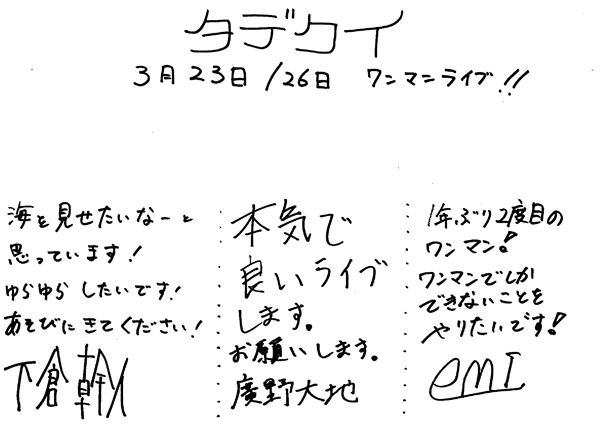 タデクイ
3月23日/26日 ワンマンライブ!!
海を見せたいなーと
思っています!
ゆらゆらしたいです!
あそびにきてください!
下倉幹人
本気で
良いライブ
します。
お願いします。
廣野大地
1年ぶり2度目の
ワンマン!
ワンマンでしか
できないことを
やりたいです!
emi